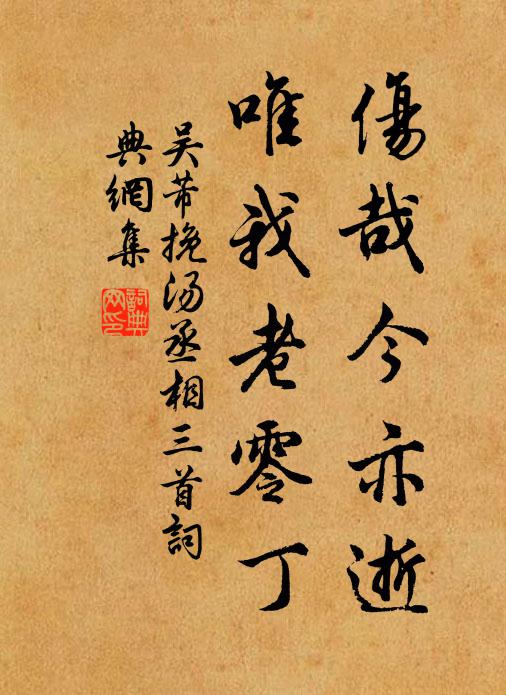 傷哉今亦逝
唯我老零丁
吴芾挽汤丞相三首詞
典網集
詞典網印